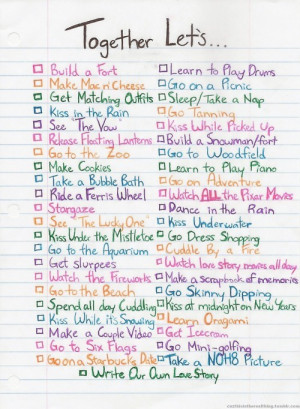 Together Let's...
Build a Fort
Make Mac n' Cheese
Get Matching Outfits
Kiss in the Rain
See "The Vow"
Release Floating Lanterns
Go to the Zoo
Make Cookies
Take a Bubble Bath
Ride a Ferris Wheel
Stargaze
See "The Lucky One"
Kiss Under the Mistletoe
Go to the Aquarium
Get slurpees
Watch the Fireworks
Go to the Beach
Spend all day Cuddling
Kiss While it's Snowing
Make a Couple Video
Go to Six Flags
Go on a Starbuck's Date
Learn to Play Drums
Go on a Picnic
Sleep/Take a Nap
Go Tanning
Kiss While Picked Up
Build a Snowman/fort
Go to Woodfield
Learn to Play Piano
Go on Adventure
Watch ALL the Pixar Movies
Dance in the Rain
Kiss Underwater
Go Dress Shopping
Cuddle By a Fire
Watch love story movies all day
Make a scrapbook of memories
Go Skinny Dipping
Kiss at midnight on New Years
Learn Oragami
Get Icecream
Go Mini-golfing
Take a NOH8 Picture
Write Our Own Love Story